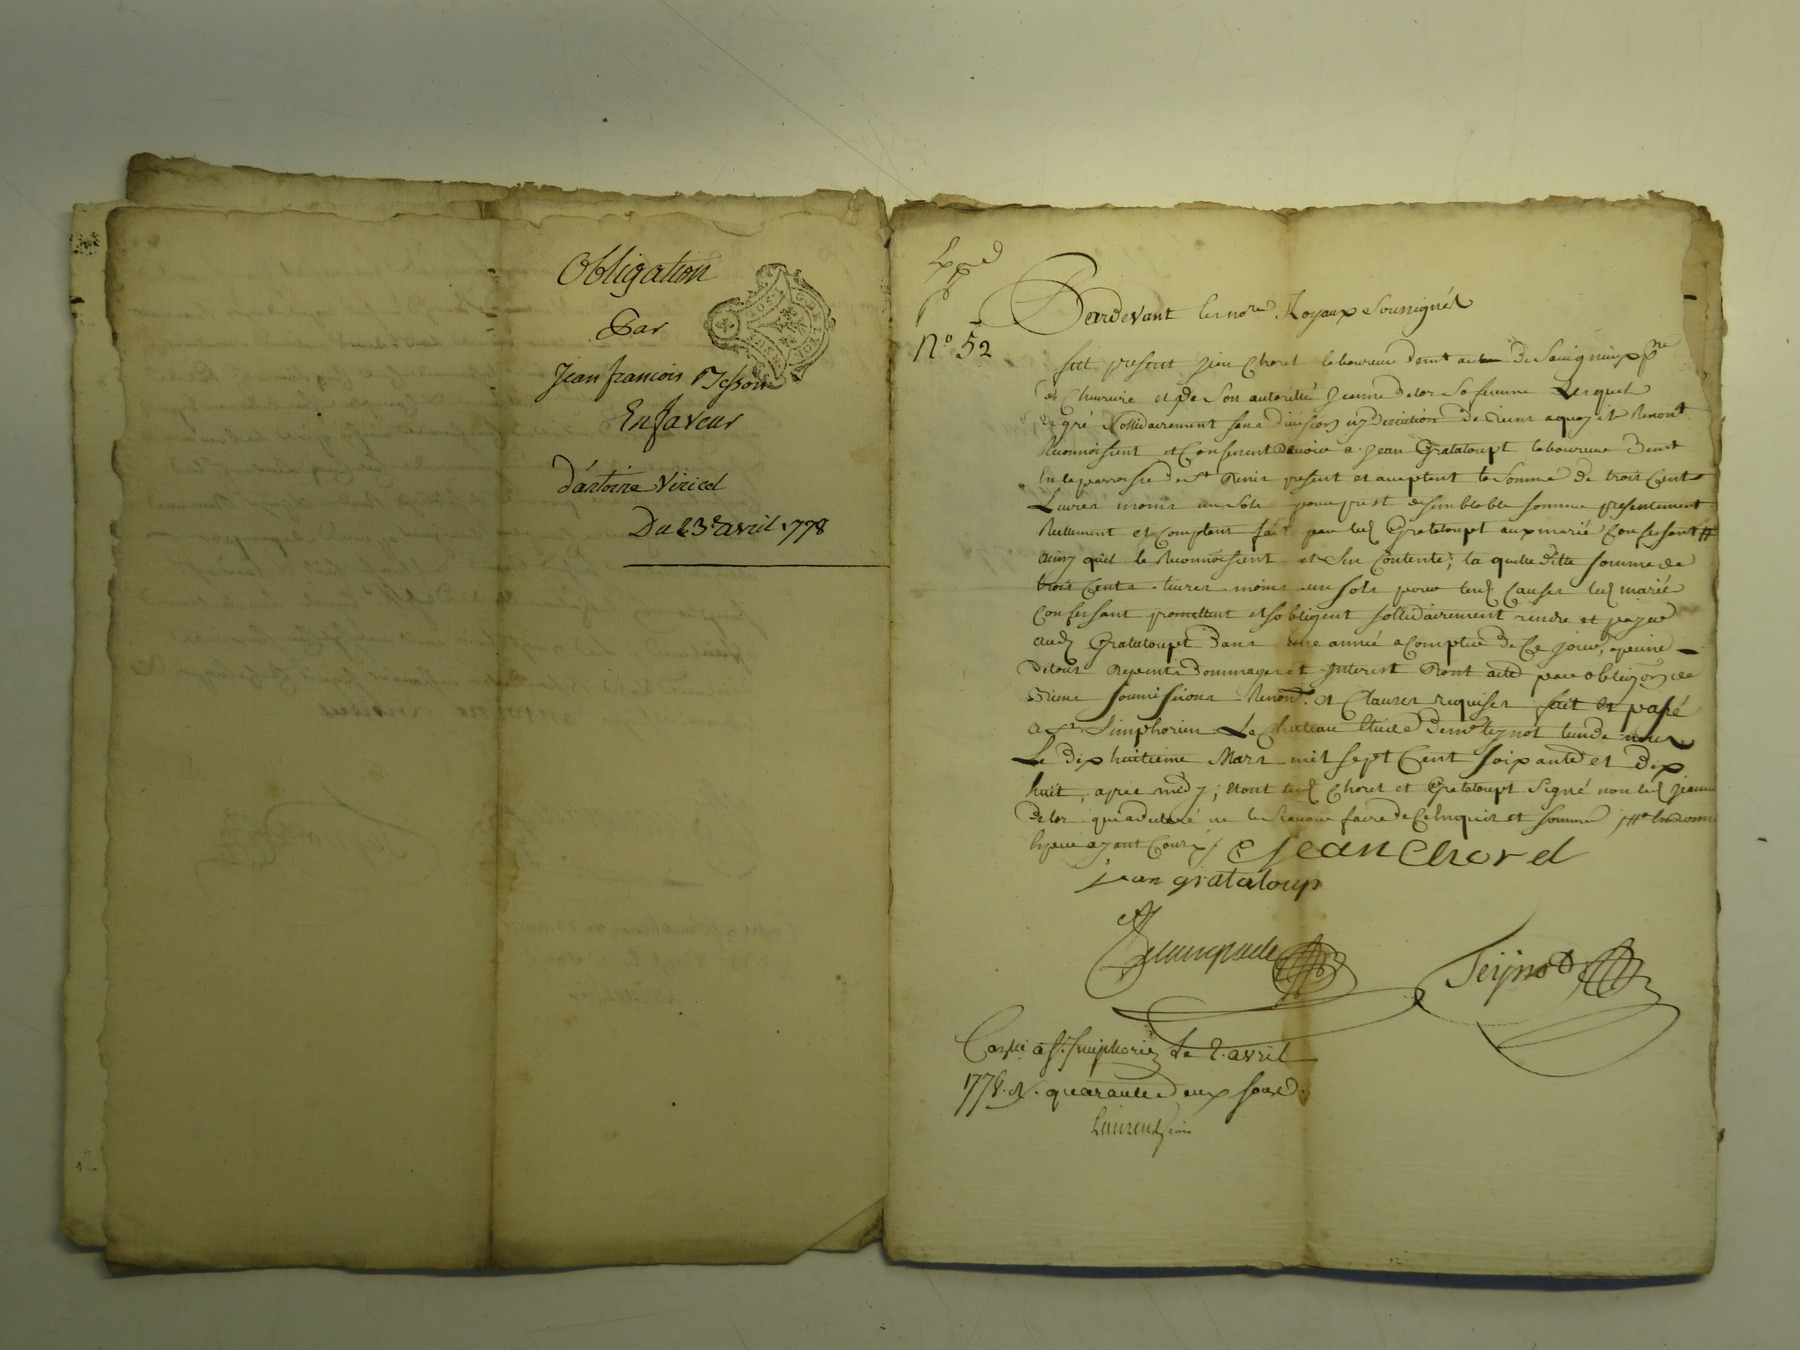 Obligation
Par
Jean francois
En faveur
D'antoine Viricel
Du 23e avril 1778
Exp.d
N.o 52
Pardevant les nore Royaux Soussignés
fut present jean Chorel laboureur demt au de Savignieu psse
de et de Son autoritté Jeanne delor Sa femme Lesquels
de gré Sollidairement sans division ny de biens a quoy ils Renont
Reconnoissent et Confessent devoir a jean Grataloupt laboureur demt
en la parroisse de St present et acceptant la Somme de trois Cents
Livres moins un Sols pour prest de semblable somme presentement
Reellement et Comptant fait par led Grataloupt aux mariés Confessant
ainsy quils le Reconnoissent et sen Contente; la quelle ditte somme de
trois Cents livres moins un sols pour lesd Causes lesd mariés
Confessant promettent et sobligent sollidairement rendre et payer
aud Grataloupt dans une année a Compter de Ce jour, apeine
de tous depents dommages et Interest Dont acte par obligon de
biens soumissions Renond et Clauses requises fait et passé
a St Simphorien Le Chateau Etude de me teynot lun de nous
Le dix huitieme Mars mil sept Cent soixante et dix
huit, apres midy; et ont led Chorel et Grataloupt Signé non lad jeanne
delor qui a declaré ne le Scavoir faire de Ce enquise et sommé
ayant Cours
Jean Chorel
jean grataloup
Teynot
Conlé a St Simphorien le 2 avril
1778. R. quarante deux sous